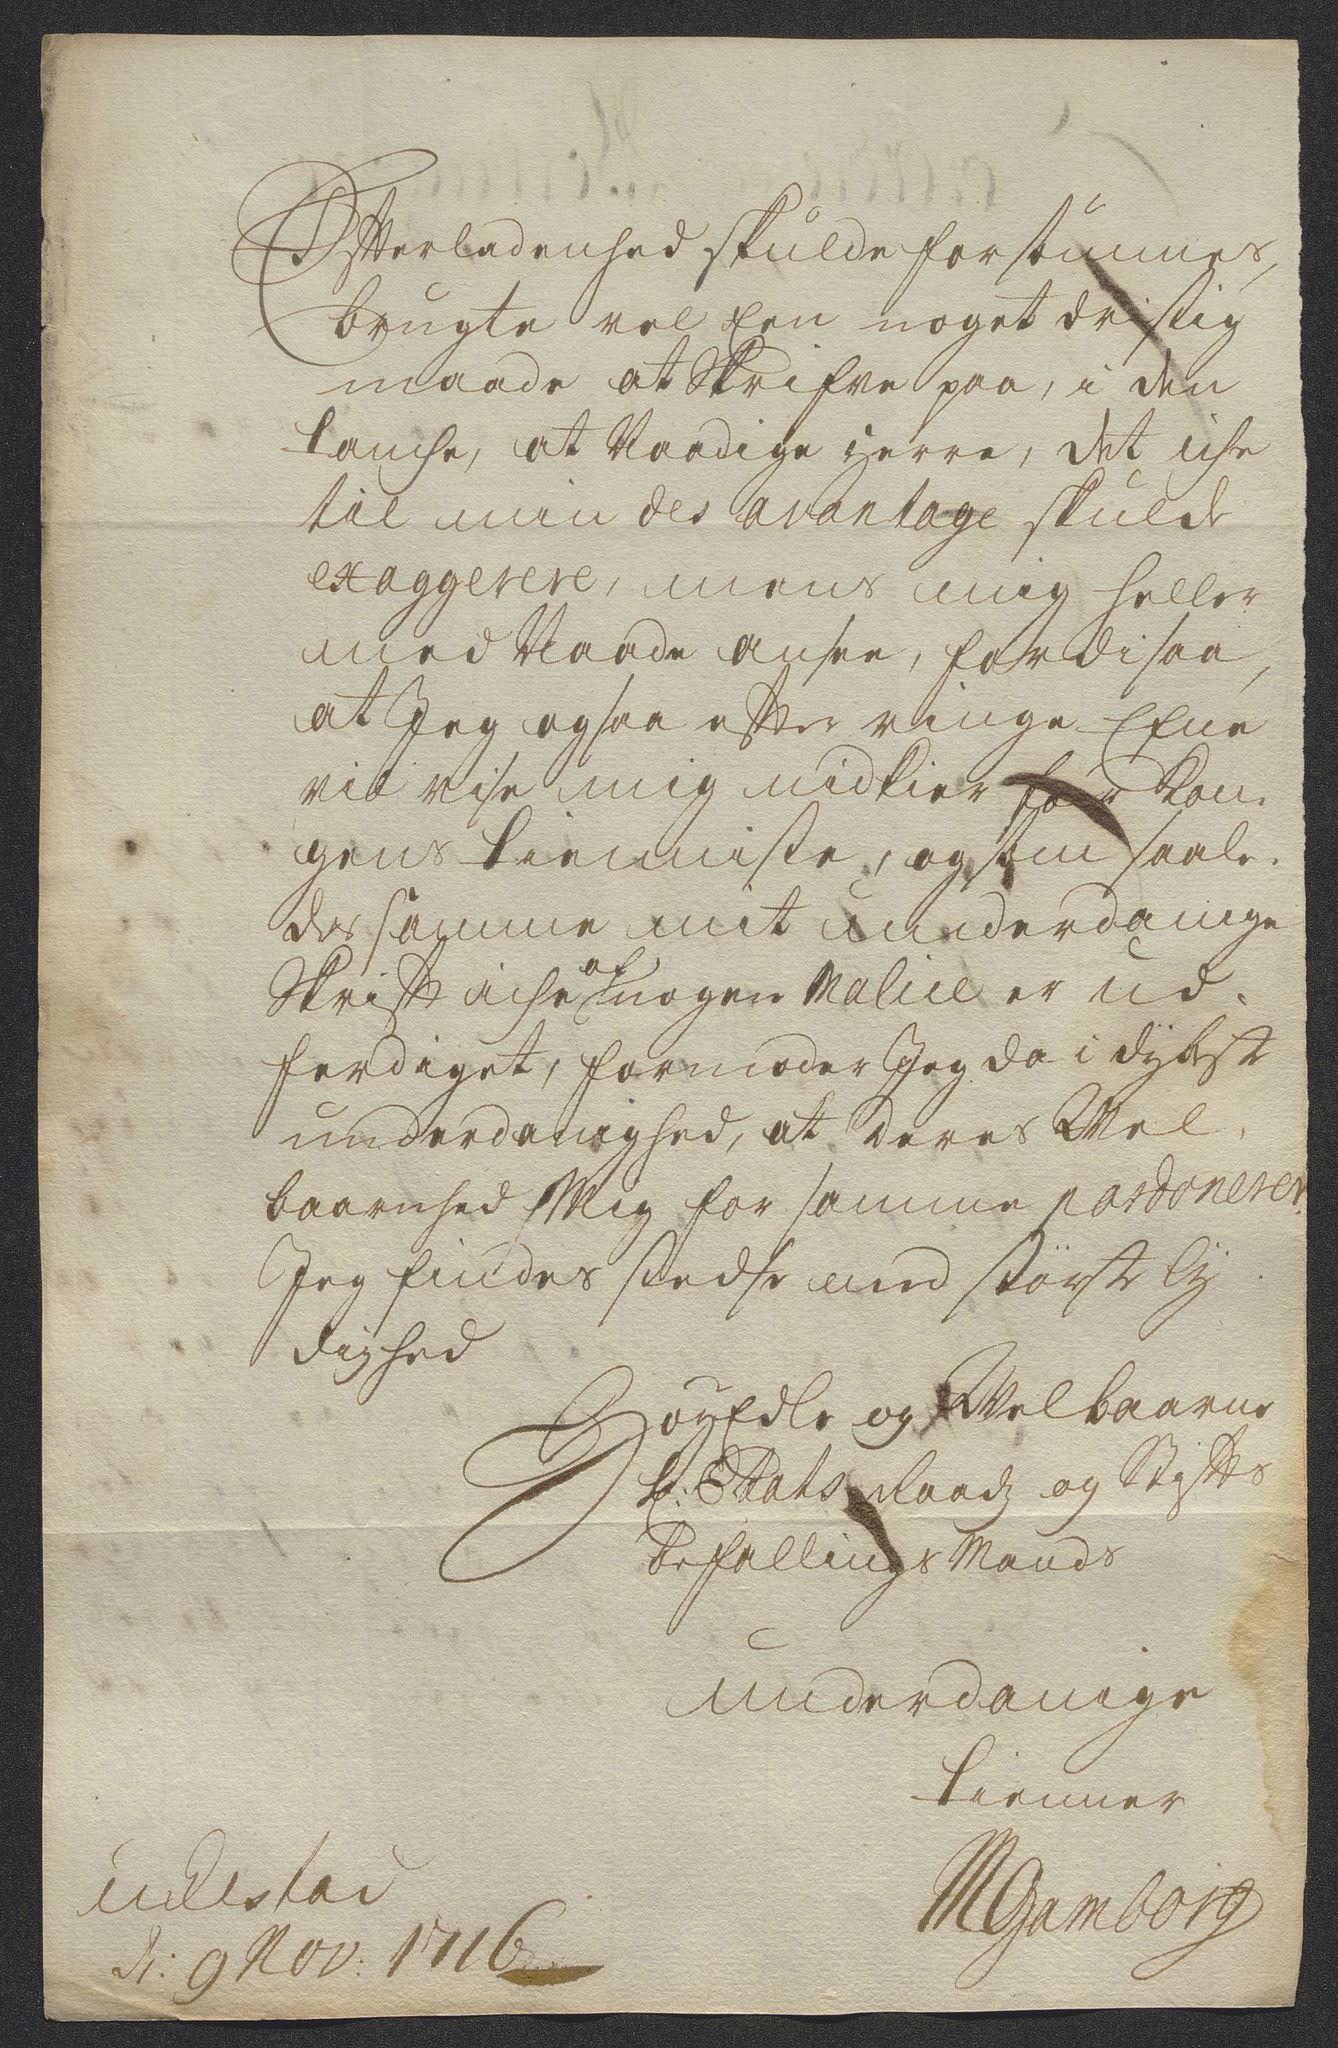 Efterladenhed skulde forstummes,
brugte vel en noget dristig
maade at Skrifve paa, i den
tanche, at Naadige Herre, det iche
til min des avantage skulde
exaggerere, mens mig heller
med Naade ansee, fordisaa,
at Jeg ogsaa efter ringe Efne
vil vise mig nidkier for Kon-
gens tienniste, og som saale-
des samme mit underdanige
Skrifft iche af nogen Malice er ud-
ferdiget, formoder Jeg da i dybest
underdanighed, at Deres Wel-
baarnhed Mig for samme pardonerer.
Jeg findes stedse med störste ly
dighed
HöyEdle og Welbaarne
H: Etats Raadz og Stiffts
Befallings Mands
underdanige
tienner
MGamborg
Udestad
d: 9 Nov: 1716